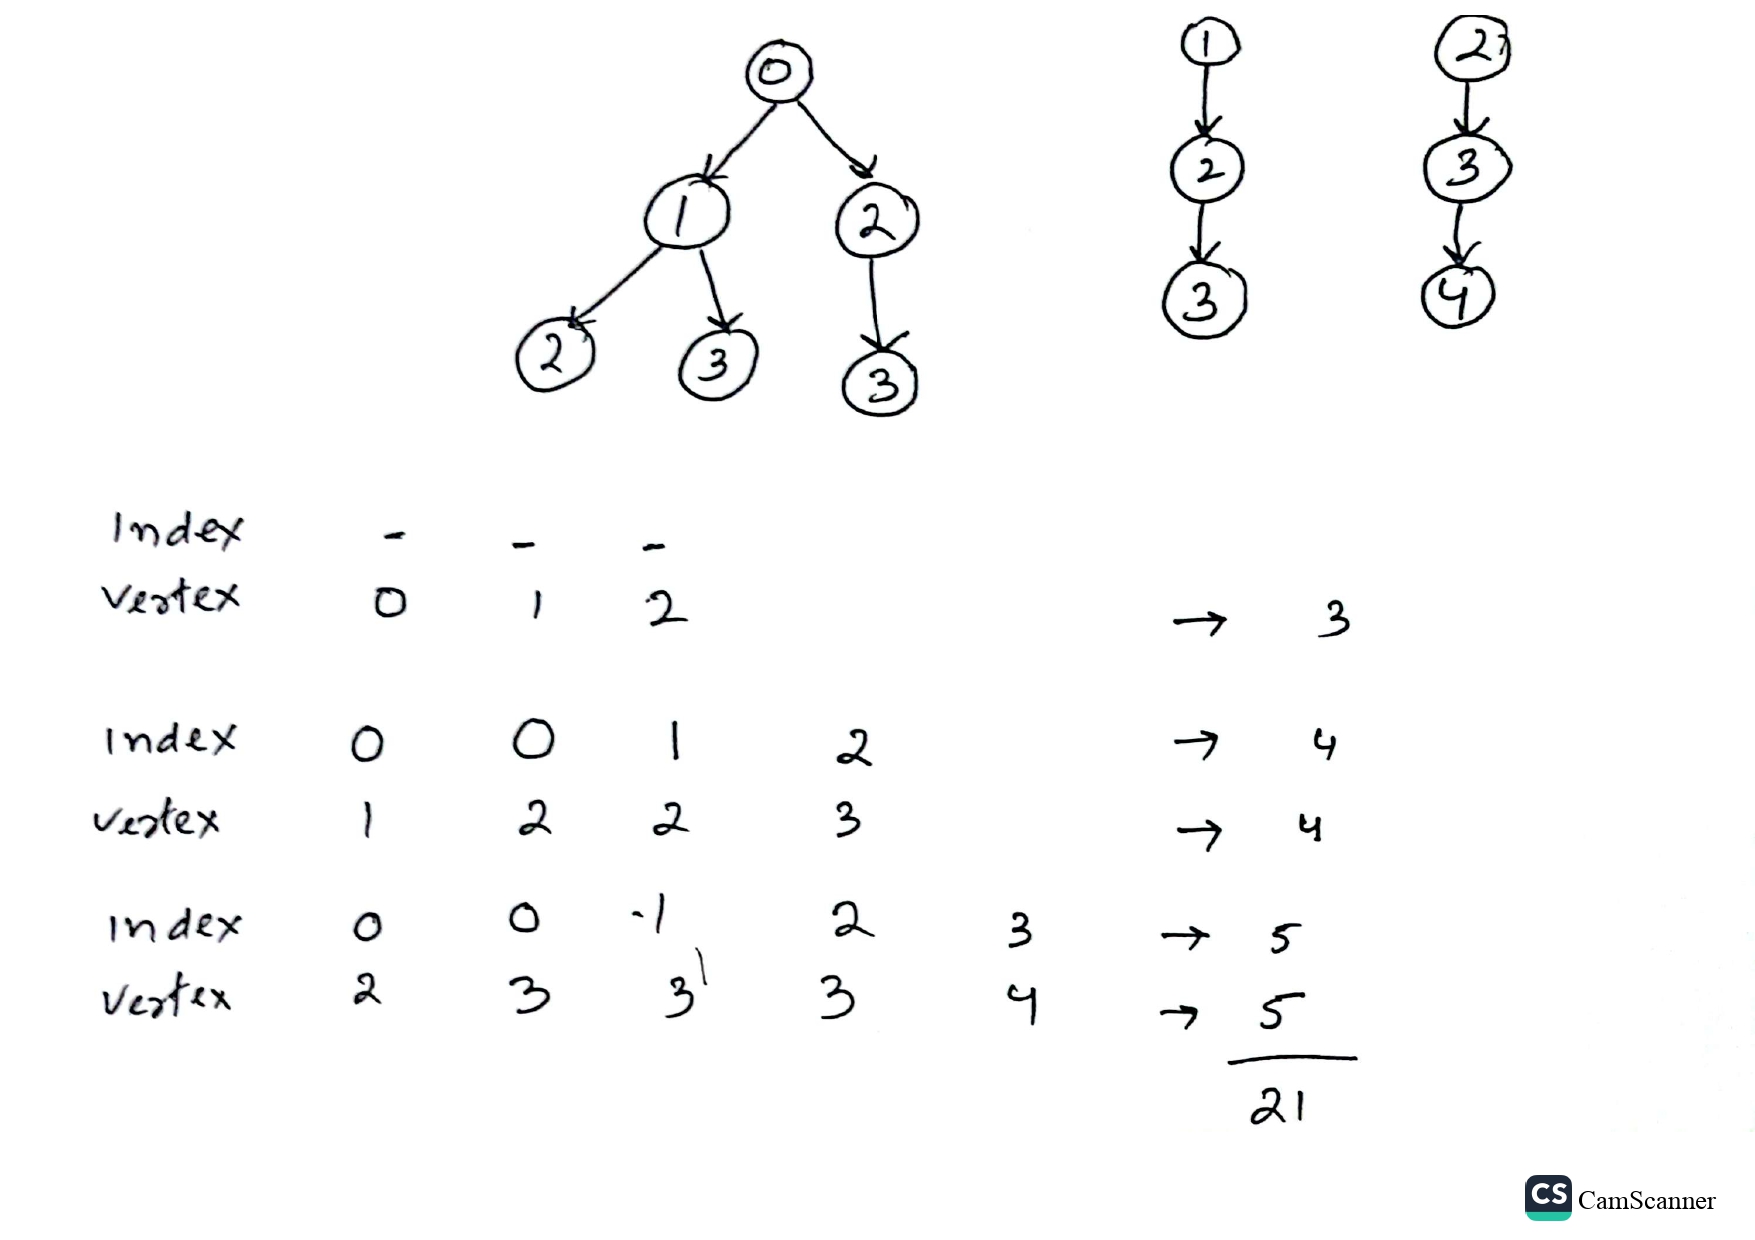 0 1 2
1 2 2 3
2 3 3 3 4
Index - - -
Vertex 0 1 2 → 3
Index 0 0 1 2 → 4
Vertex 1 2 2 3 → 4
Index 0 0 1 2 3 → 5
Vertex 2 3 3 3 4 → 5
21
CS CamScanner